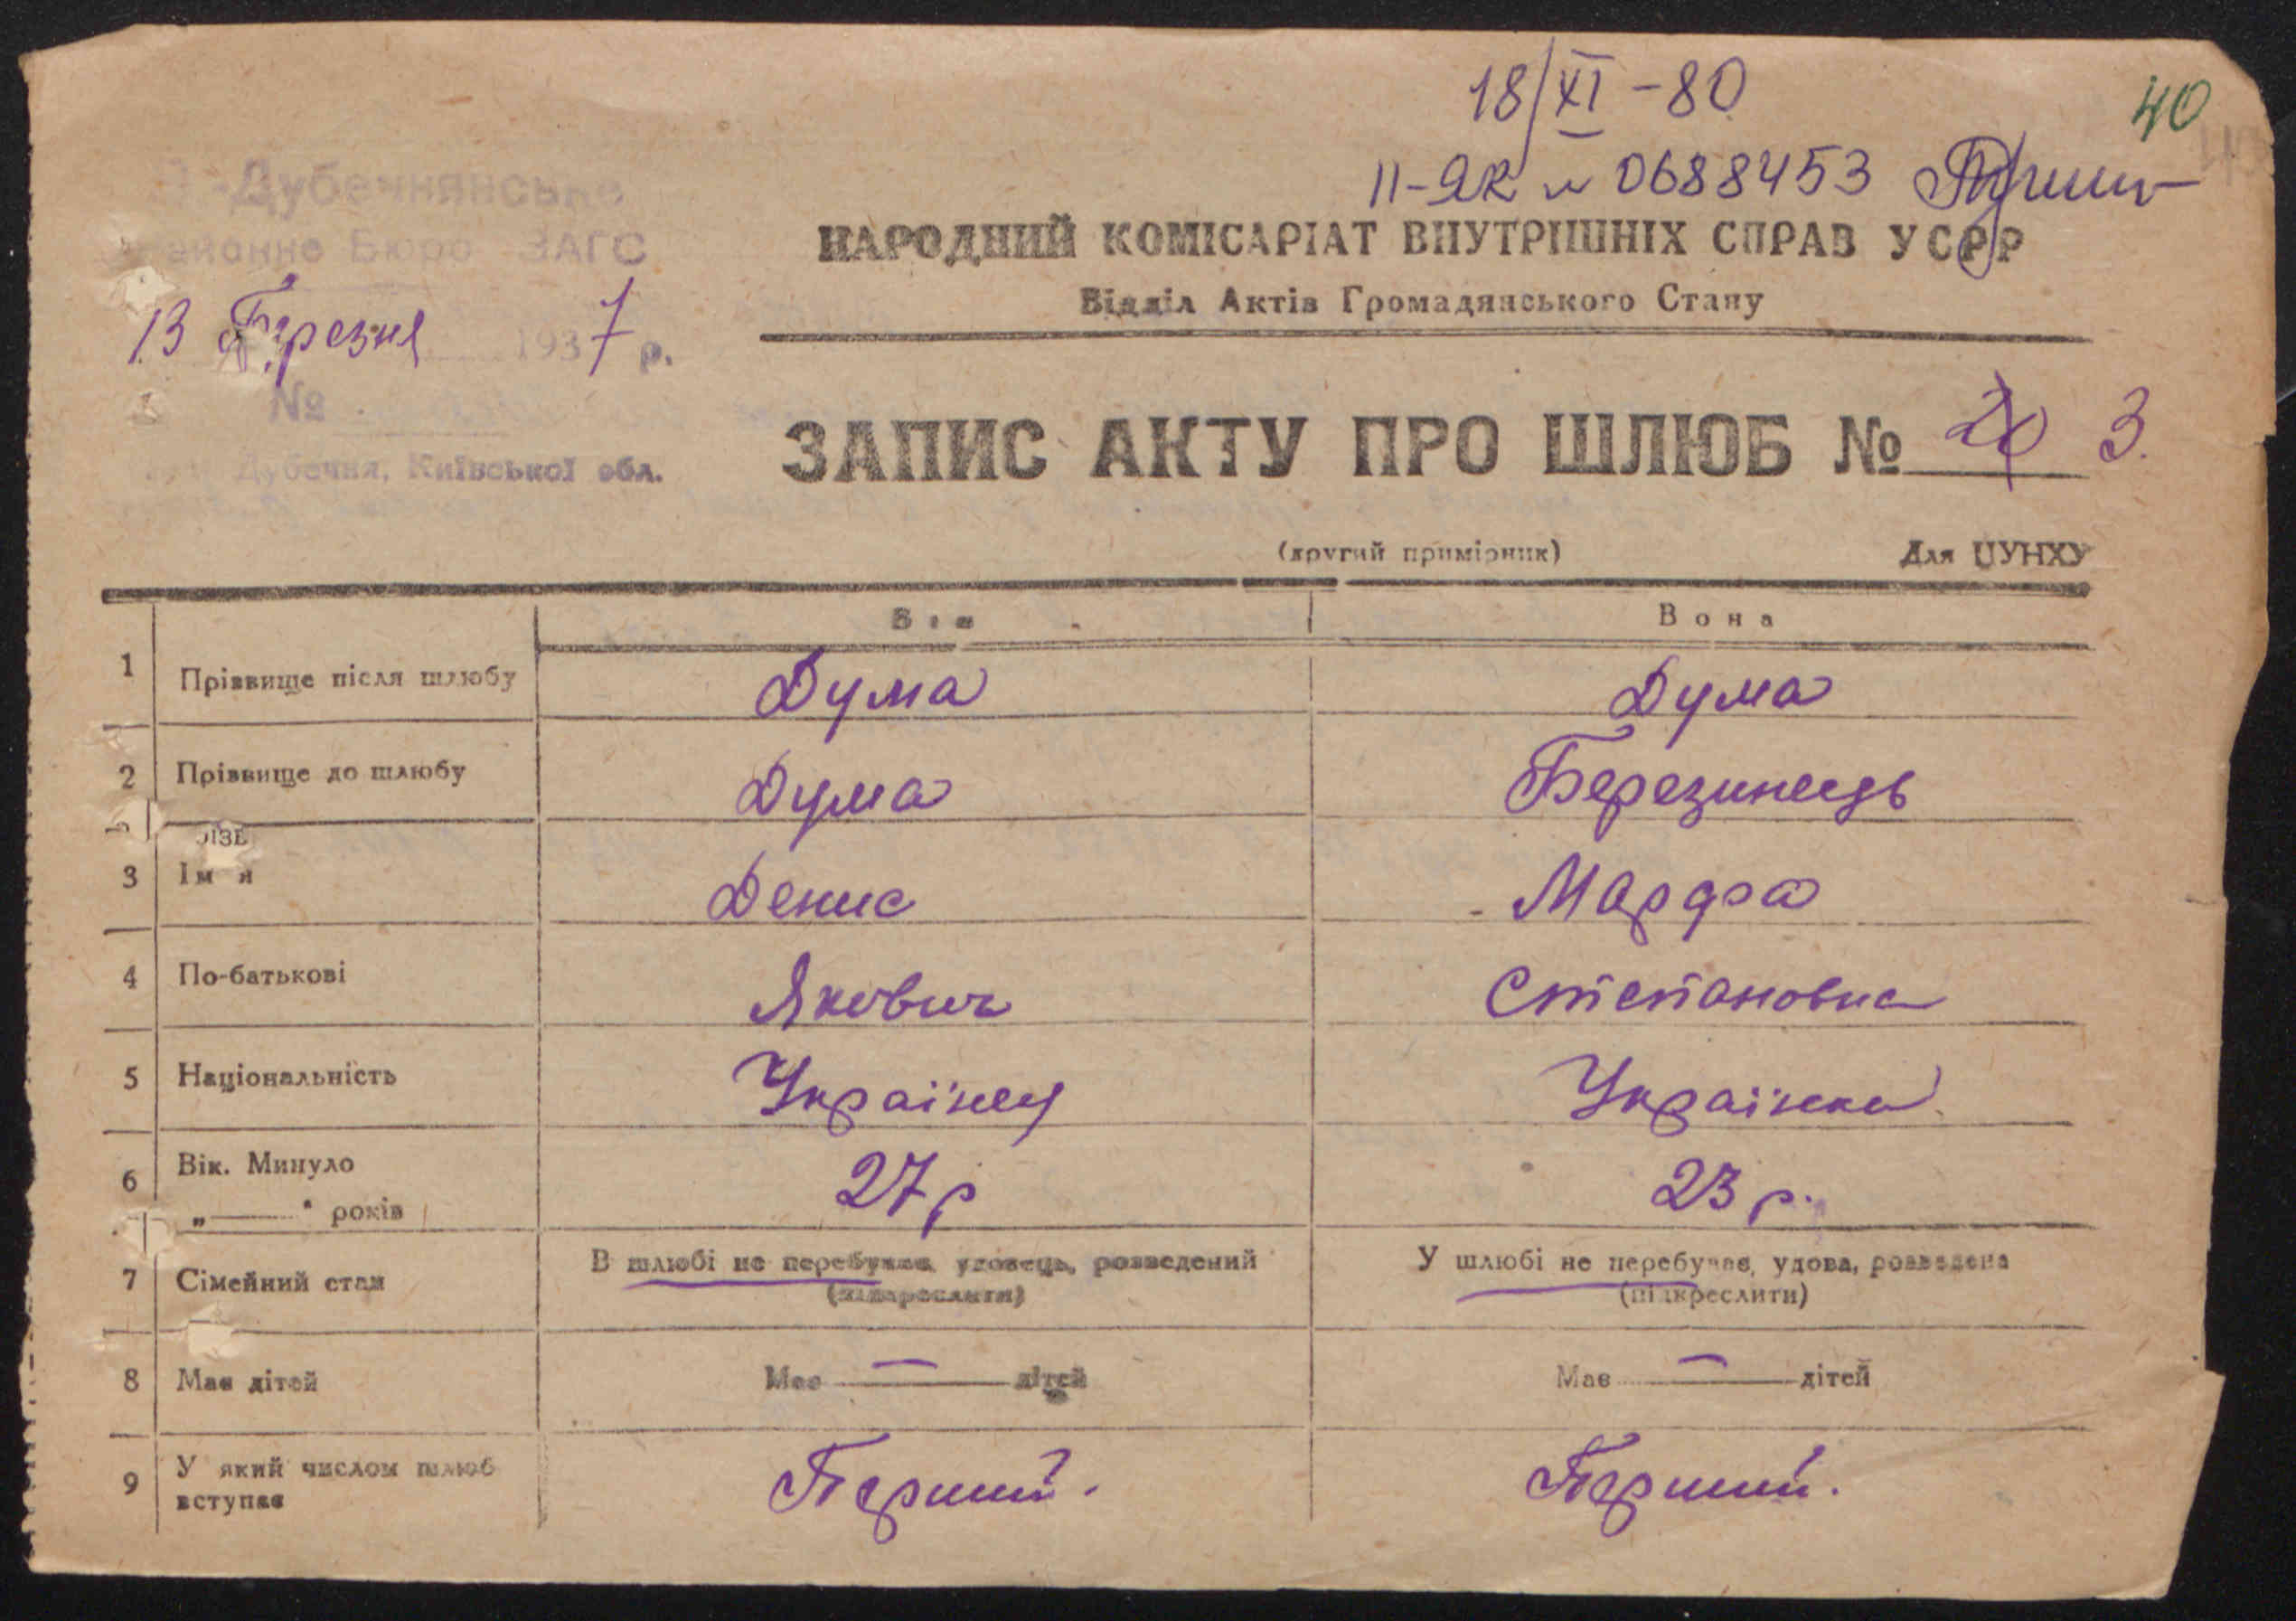 18/XI -80
40
II-ЯК № 0688453
Дубечнянське
районне Бюро ЗАГС
13 Березня 1937 р.
№
Дубечня, Київської обл.
НАРОДНИЙ КОМІСАРІАТ ВНУТРІШНІХ СПРАВ УСРР
Відділ Актів Громадянського Стану
ЗАПИС АКТУ ПРО ШЛЮБ № 3.
(другий примірник) Для ЦУНХУ
Він Вона
1 Прізвище після шлюбу Дума Дума
2 Прізвище до шлюбу Дума Березинець
3 Ім я Денис Марфа
4 По-батькові Якович Степановна
5 Національність Українец Українка
6 Вік. Минуло 27 р 23 р.
„——" років
7 Сімейний стан В шлюбі не перебував, удовець, розведений У шлюбі не перебуває, удова, розведена
(підкреслити) (підкреслити)
8 Має дітей Має — дітей Має — дітей
9 У який числом шлюб Перший. Перший.
вступає